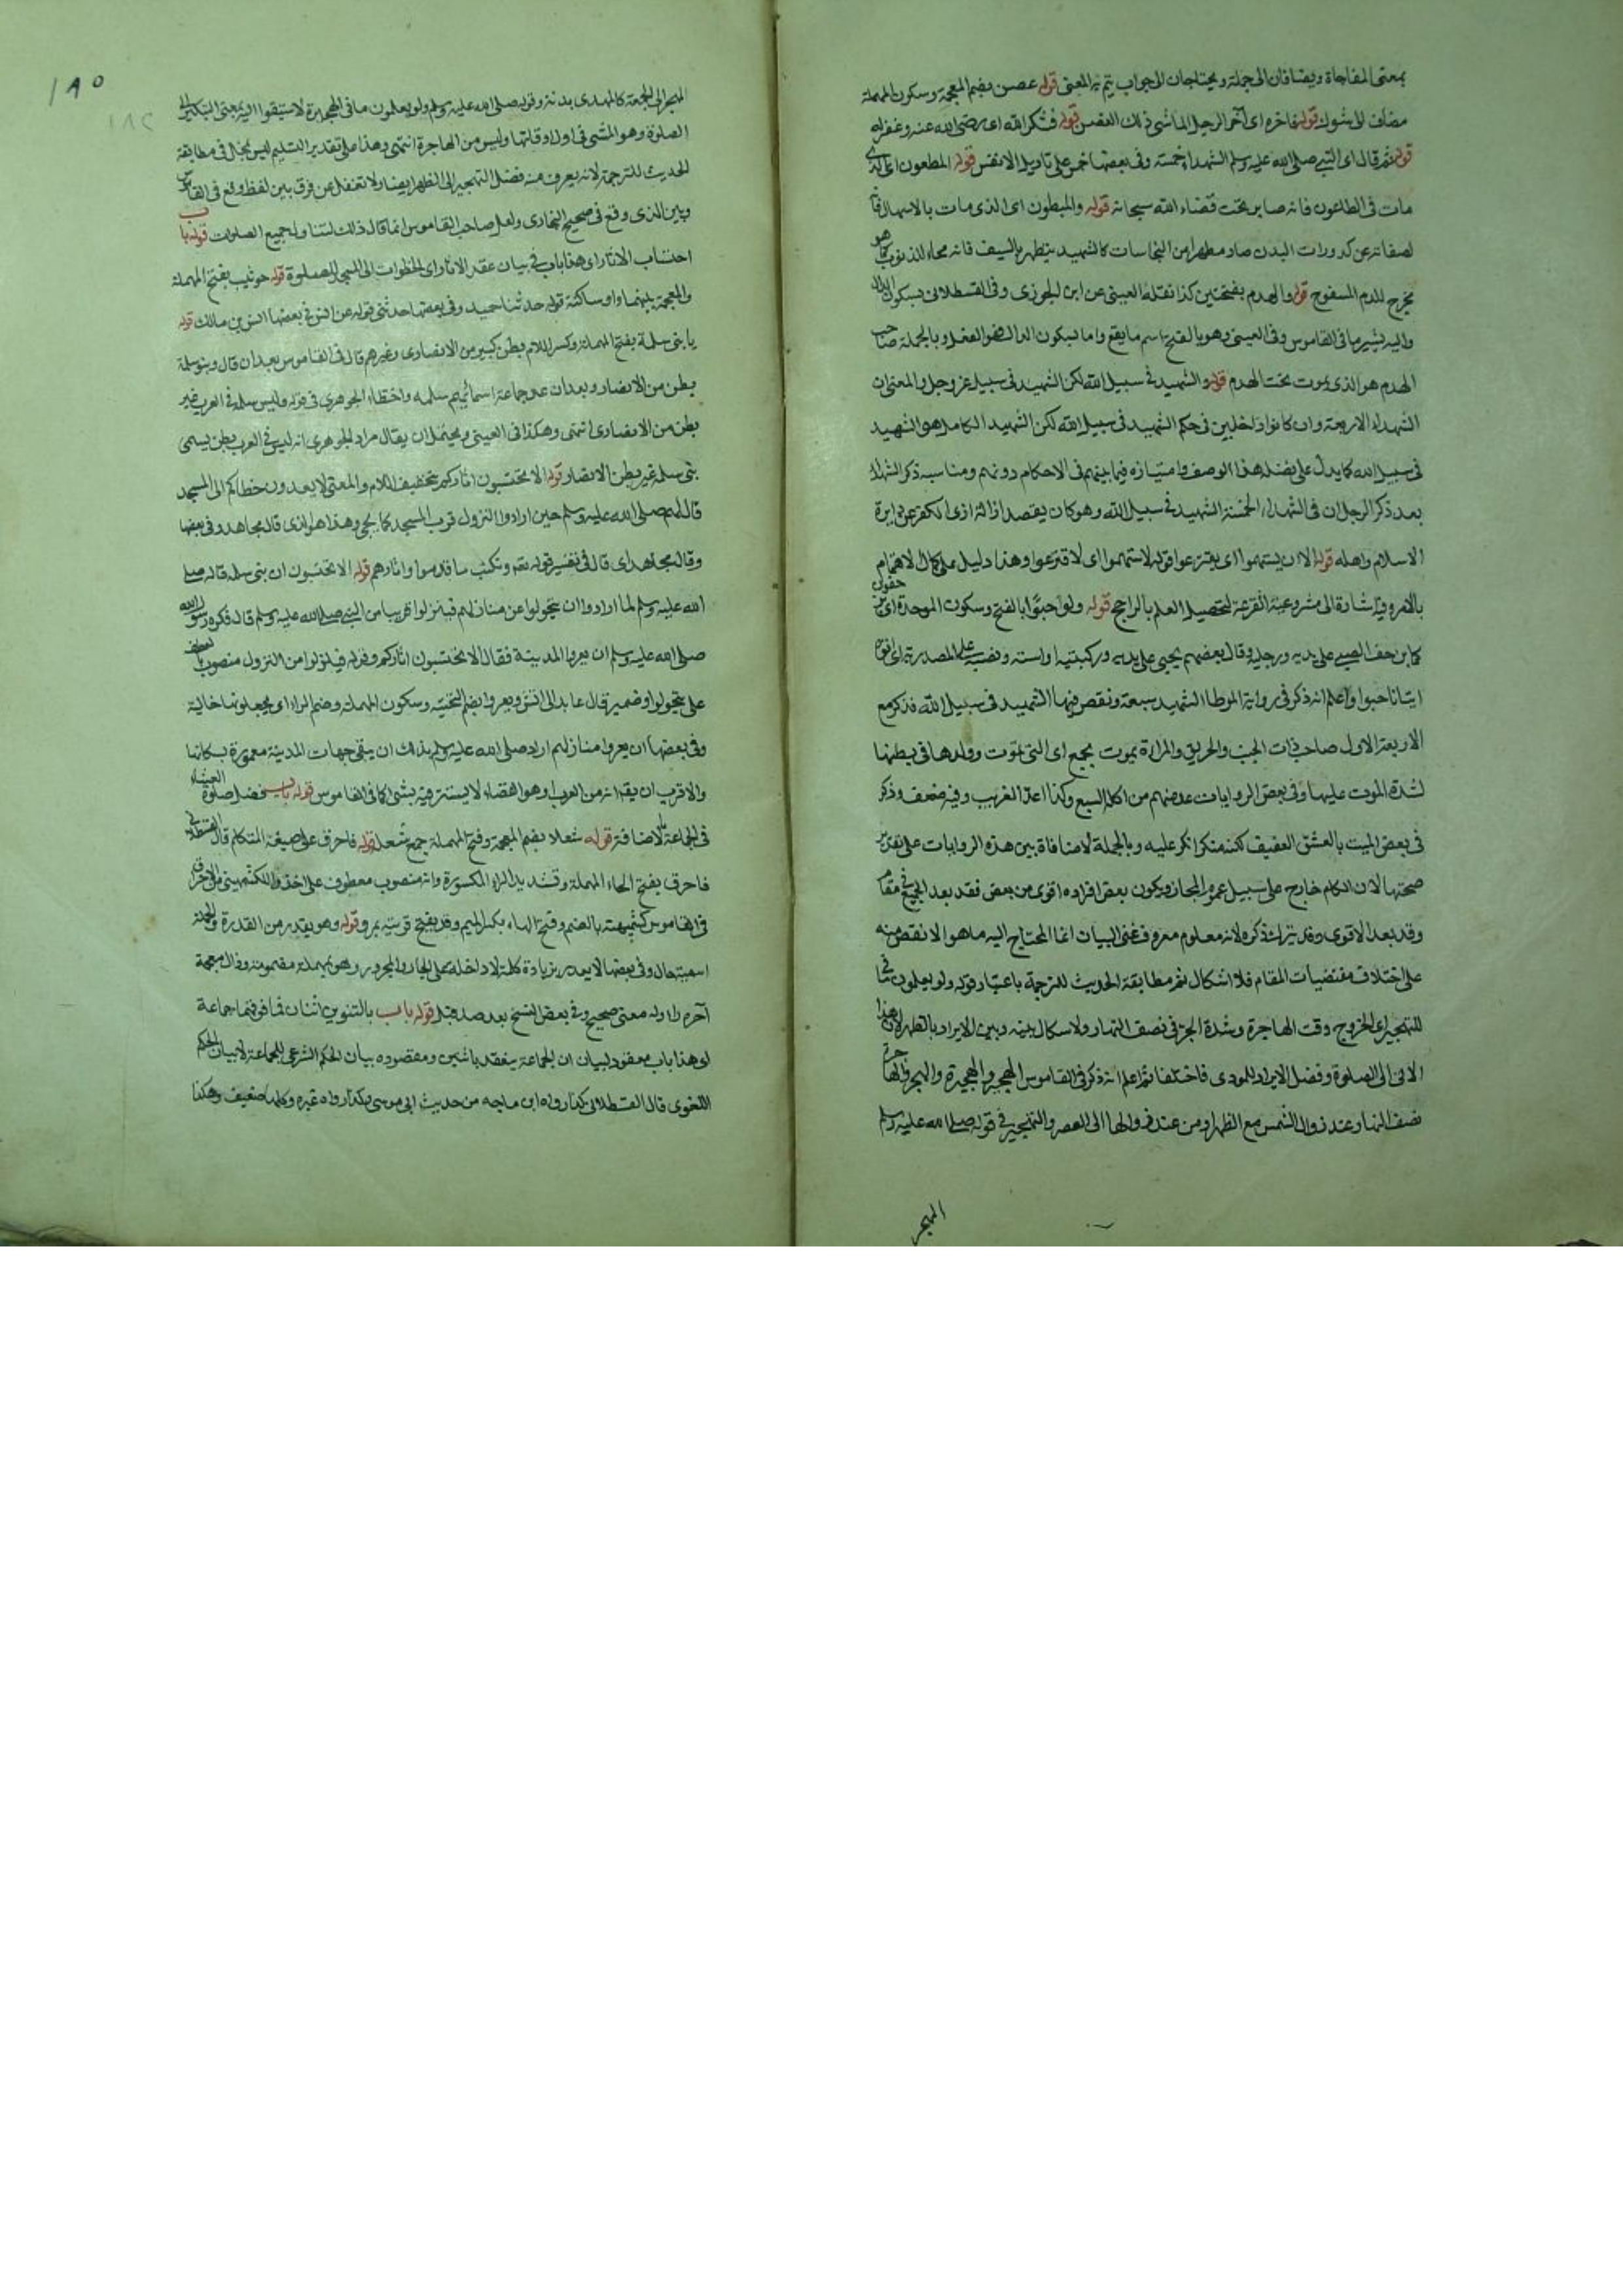 بمعنى المفاجاة ويضافان الى جملة ويحتاجان الى جواب يتم به المعنى قوله غصن بضم المعجمة وسكون المهملة
مضاف الى شوك قوله فاخره اى آخر الرجل الماشى ذلك الغصن قوله فشكر الله اى رضى الله عنه وغفر له
قوله ثم قال اى النبى صلى الله عليه وسلم الشهداء خمسة وفى بعضها خمس على تاويل الانفس قوله المطعون اى الذى
مات فى الطاعون فانه صابر تحت قضاء الله سبحانه قوله والمبطون اى الذى مات بالاسهال
عن كدورات البدن صار مطهرا من النجاسات كالشهيد يتطهر بالسيف فانه محاء للذنوب كما هو
يخرج للدم المسفوح قوله والهدم بفتحتين كذا نقله العينى عن ابن الجوزى وفى القسطلانى بسكون الدال
واليه يشير ما فى القاموس وفى العينى وهو بالفتح اسم ما يقع واما بسكون الدال فهو الفعل وبالجملة صاحب
الهدم هو الذى يموت تحت الهدم قوله والشهيد فى سبيل الله لكن الشهيد فى سبيل عز وجل والمعنى ان
الشهداء الاربعة وان كانوا داخلين فى حكم الشهيد فى سبيل الله لكن الشهيد الكامل هو الشهيد
فى سبيل الله كما يدل على فضله هذا الوصف وامتيازه فيما بينهم فى الاحكام دونهم ومناسبة ذكر الشهداء
بعد ذكر الرجل ان فى الشهداء الخمسة الشهيد فى سبيل الله وهو كان يقصد ازالة اذى الكفر عن دايرة
الاسلام واهله قوله الا ان يستهموا اى يقترعوا قوله لاستهموا اى لاقترعوا وهذا دليل على كمال الاهتمام
بالامر وفيه اشارة الى مشروعية القرعة لتحصيل العلم بالراجح قوله ولو حبوا بالفتح وسكون الموحدة اى
الصبى على يديه ورجليه وقال بعضهم يحبى على يديه وركبتيه او استه ونصبه على المصدرية اى
اتيانا حبوا واعلم انه ذكر فى رواية الموطا الشهيد سبعة ونقص فيها الشهيد فى سبيل الله فذكر مع
الاربعة الاول صاحب ذات الجنب والحريق والمراة يموت بجمع اى التى تموت وولدها فى بطنها
لشدة الموت عليها وفى بعض الروايات عد منهم من اكله السبع وكذا عد الغريب وفيه ضعف وذكر
فى بعض الميت بالعشق العفيف لكنه منكر انكر عليه وبالجملة لا منافاة بين هذه الروايات على تقدير
صحتها لان الكلام خارج على سبيل عموم المجاز ويكون بعض افراده اقوى من بعض فقد يعد الجميع فى مقام
وقد يعد الاقوى وقد يترك ذكره لانه معلوم معروف غنى البيان انما المحتاج اليه ما هو الانقص منه
على اختلاف مقتضيات المقام فلا اشكال ثم مطابقة الحديث للترجمة باعتبار قوله ولو يعلمون ما فى
التهجير اى الخروج وقت الهاجرة وشدة الحر فى نصف النهار ولا اشكال بينه وبين الايراد بالظهر لان هذا
الاتى الى الصلوة وفضل الايراد للمودى فاختلفا ثم اعلم انه ذكر فى القاموس الهجير والهجيرة والهجر والهاجرة
نصف النهار عند زوال الشمس مع الظهر او من عند زوالها الى العصر والتهجير فى قوله صلى الله عليه وسلم
المهجر
١٨٥
المهجر الى الجمعة كالمهدى بدنة وقوله صلى الله عليه وسلم ولو يعلمون ما فى الهجيرة لاستبقوا اليه بمعنى التبكير الى
الصلوة وهو المشى فى اول اوقاتها وليس من الهاجرة انتهى وهذا على تقدير التسليم ليس يخل فى مطابقة
الحديث للترجمة لانه يعرف منه فضل التهجير الى الظهر ايضا ولا تغفل عن فرق بين لفظ وقع فى القاموس
وبين الذى وقع فى صحيح البخارى ولعل صاحب القاموس انما قال ذلك لتناوله جميع الصلوات قوله باب
احتساب الاثار اى هذا باب فى بيان عقد الاثار اى الخطوات الى المسجد للصلوة قوله حوشب بفتح المهملة
والمعجمة بينهما واو ساكنة قوله حدثنا حميد وفى بعضها حدثنى قوله عن انس فى بعضها انس بن مالك قوله
يا بنى سلمة بفتح المهملة وكسر اللام بطن كبير من الانصارى وغيرهم قال فى القاموس بعد ان قال وبنو سلمة
بطن من الانصار وبعد ان عد جماعة اسمائهم سلمه واخطاء الجوهرى فى قوله وليس سلمة فى العرب غير
بطن من الانصارى انتهى وهكذا فى العينى ويحتمل ان يقال مراد الجوهرى انه ليس فى العرب بطن يسمى
بنى سلمة غير بطن الانصار قوله الا تحتسبون اثاركم بتخفيف اللام والمعنى الا يعدون خطاكم الى المسجد
قال لهم صلى الله عليه وسلم حين ارادوا النزول قرب المسجد كما يجئ وهذا هو الذى قال مجاهد وفى بعضها
وقال مجاهد اى قال فى تفسير قوله تعم ونكتب ما قدموا واثارهم قوله الا تحتسبون ان بنى سلمة قاله صلى
الله عليه وسلم لما ارادوا ان يتحولوا عن منازلهم فينزلوا قريبا من النبى صلى الله عليه وسلم قال فكره رسول الله
صلى الله عليه وسلم ان يعروا المدينة فقال الا تحتسبون اثاركم وقوله فينزلوا من النزول منصوب بعطف
على يتحولوا وضمير قال عايد الى انس ويعروا بضم التحتية وسكون المهملة وضم الراء اى يجعلونها خالية
وفى بعضها ان يعروا منازلهم اراد صلى الله عليه وسلم بذلك ان يبقى جهات المدينة معمورة بسكانها
والاقرب ان يقر انه من العراء وهو الفضاء لا يستتر فيه بشئ كما فى القاموس قوله باب فضل صلوة العشاء
فى الجماعة بالاضافة قوله شعلا بضم المعجمة وفتح المهملة جمع شعلة قوله فاحرق على صيغة المتكلم قال القسطلانى
فاحرق بفتح الحاء المهملة وتشديد الراء المكسورة وانه منصوب معطوف على اخذ
بالضم وفتح الهاء بكسر الميم وقد يفتح قوله وهو يقدر من القدرة والجملة
اسمية حال وفى بعضها لا يعذر بزيادة كلمة لا داخلة على الجار والمجرور وهو بمهملة مضمومة وذال معجمة
آخره راء وله معنى صحيح وفى بعض النسخ بعد صد قبل قوله باب بالتنوين اثنان فما فوقهما جماعة
اى هذا باب معقود لبيان ان الجماعة ينعقد باثنين ومقصوده بيان الحكم الشرعى للجماعة لا بيان الحكم
اللغوى قال القسطلانى كذا رواه ابن ماجه من حديث ابى موسى وكذا رواه غيره وكلها ضعيف وهكذا